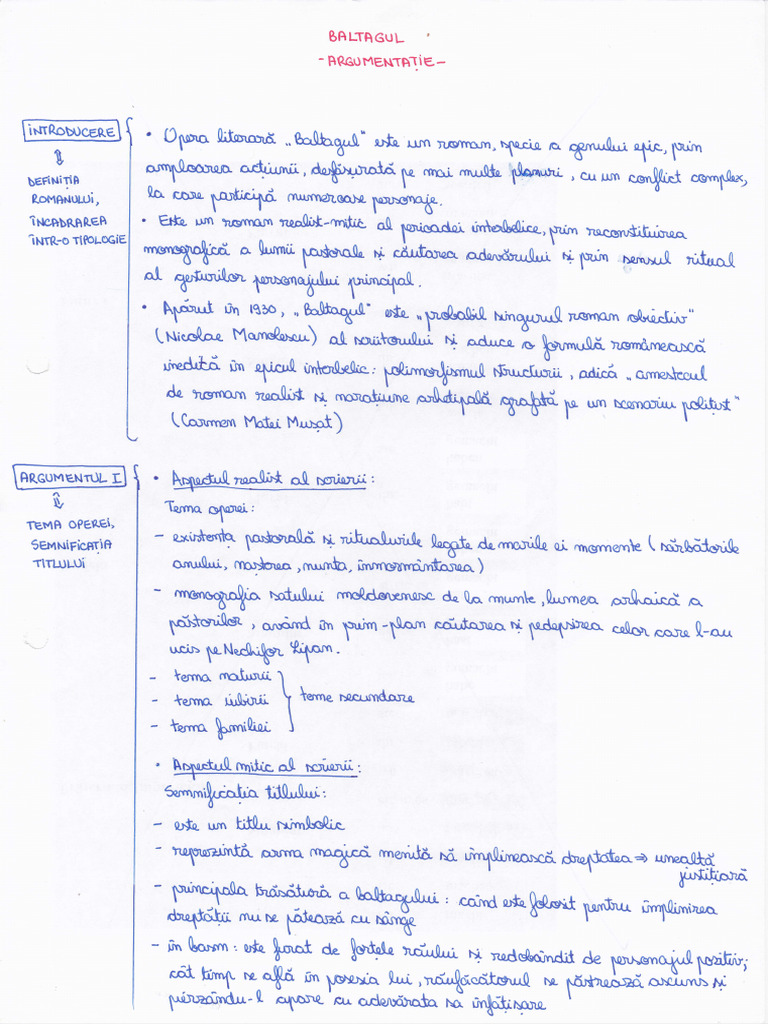 BALTAGUL
- ARGUMENTAȚIE -
INTRODUCERE
DEFINIȚIA
ROMANULUI,
ÎNCADRAREA
ÎNTR-O TIPOLOGIE
• Opera literară „Baltagul" este un roman, specie a genului epic, prin
amploarea acțiunii, desfășurată pe mai multe planuri, cu un conflict complex,
la care participă numeroase personaje.
• Este un roman realist-mitic al perioadei interbelice, prin reconstituirea
monografică a lumii pastorale și căutarea adevărului și prin sensul ritual
al gesturilor personajului principal.
• Apărut în 1930, „Baltagul" este „probabil singurul roman obiectiv"
(Nicolae Manolescu) al scriitorului și aduce o formulă românească
inedită în epicul interbelic: polimorfismul structurii, adică „amestecul
de roman realist și narațiune arhetipală grafată pe un scenariu polițist"
(Carmen Matei Mușat)
ARGUMENTUL I
TEMA OPEREI,
SEMNIFICAȚIA
TITLULUI
• Aspectul realist al scrierii:
Tema operei:
- existența pastorală și ritualurile legate de marile ei momente (sărbătorile
anului, nașterea, nunta, înmormântarea)
- monografia satului moldovenesc de la munte, lumea arhaică a
păstorilor, având în prim-plan căutarea și pedepsirea celor care l-au
ucis pe Nechifor Lipan.
- tema naturii
- tema iubirii
- tema familiei
teme secundare
• Aspectul mitic al scrierii:
Semnificația titlului:
- este un titlu simbolic
- reprezintă arma magică menită să împlinească dreptatea ⇒ unealtă
justițiară
- principala trăsătură a baltagului: când este folosit pentru împlinirea
dreptății nu se pătează cu sânge
- în basm: este furat de forțele răului și redobândit de personajul pozitiv;
cât timp se află în posesia lui, răufăcătorul se păstrează ascuns și
pierzându-l apare cu adevărata sa înfățișare